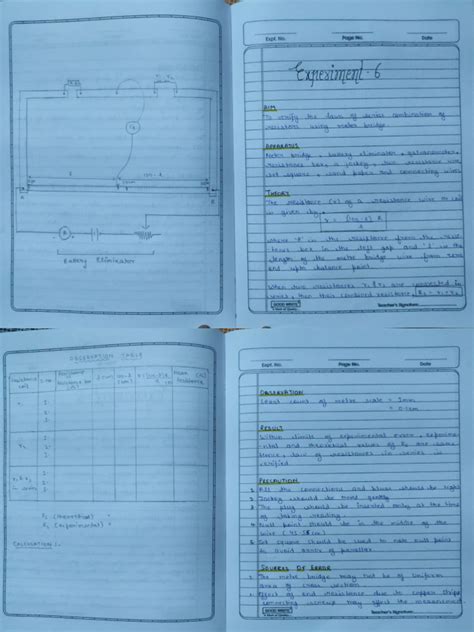 R
G
l
100-l
A
B
Battery Eliminator
Expt. No.
Page No.
Date
Experiment - 6
AIM
To verify the laws of series combination of
resistors using meter bridge
APPARATUS
Meter bridge, battery eliminator, galvanometer,
resistance box, a jockey, two resistance wire
set square, sand paper and connecting wires
THEORY
The resistance (r) of a resistance wire
is given by,
r = (100-l) R
l
where 'R' is the resistance from the
box in the left gap and 'l' is the
length of the meter bridge wire from zero
end upto balance point.
When two resistances r₁ & r₂ are connected in
series, then their combined resistance, Rs = r₁ + r₂
GOOD WRITE
Teacher's Signature:
OBSERVATION TABLE
Resistance
coil
S.No
Resistance
Resistance box
l (cm)
100-l
(cm)
Mean
Resistance
r₁
1.
2.
3.
r₂
1.
2.
3.
r₁ & r₂
in series
1.
2.
3.
Rs (theoretical) =
Rs (experimental) =
CALCULATION :-
Expt. No.
Page No.
Date
OBSERVATION
Least count of metre scale = 1mm
= 0.1cm
RESULT
Within limits of experimental error, experime-
-ntal and theoretical values of Rs are same
hence, law of resistances in series is
verified
PRECAUTION
1. All the connections and should be tight
2. Jockey should be moved gently
3. The plug should be inserted only at the time
of taking reading.
4. Null point should be in the middle of the
wire
5. Set square should be used to note null point
to avoid error of parallax
SOURCES OF ERROR
1. The metre bridge may not be of uniform
area of cross section
2. Effect of end resistance due to copper strips
connecting screws may affect the measurement
GOOD WRITE
Teacher's Signature: